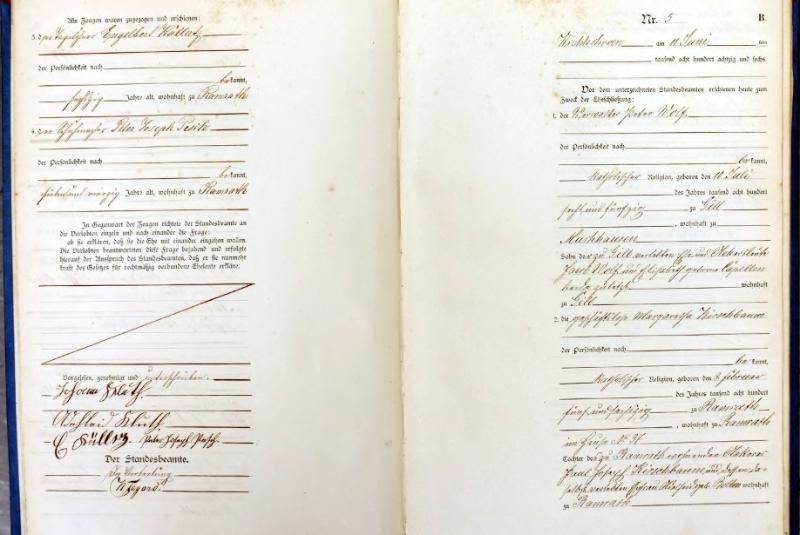 Als Zeugen waren zugezogen und erschienen:
3. der Tagelöhner Engelbert
der Persönlichkeit nach
bekannt,
sechzig Jahre alt, wohnhaft zu Ramrath
4. der Schuhmacher Peter Joseph
der Persönlichkeit nach
bekannt,
sieben und vierzig Jahre alt, wohnhaft zu Ramrath
In Gegenwart der Zeugen richtete der Standesbeamte an
die Verlobten einzeln und nach einander die Frage:
ob sie erklären, daß sie die Ehe mit einander eingehen wollen.
Die Verlobten beantworteten diese Frage bejahend und erfolgte
hierauf der Ausspruch des Standesbeamten, daß er sie nunmehr
kraft des Gesetzes für rechtmäßig verbundene Eheleute erkläre.
Vorgelesen, genehmigt und unterschrieben.
Johann Kluth
Adelheid Kluth
Peter Joseph
Der Standesbeamte.
In Vertretung
Nr. 5 B.
am 11 Juni ten
tausend acht hundert achtzig und sechs.
Vor dem unterzeichneten Standesbeamten erschienen heute zum
Zweck der Eheschließung:
1. der Verwalter Peter Wolf
der Persönlichkeit nach
bekannt,
katholischer Religion, geboren den 10 Juli
des Jahres tausend acht hundert
sechs und fünfzig zu Gill
, wohnhaft zu
Sohn der zu Gill verlebten
Jacob Wolf und Elisabeth geborene Capellen
beide zuletzt wohnhaft
zu Gill
2. die geschäftslose Margaretha Kirschbaum
der Persönlichkeit nach
bekannt,
katholischer Religion, geboren den 8 Februar
des Jahres tausend acht hundert
fünf und sechzig zu Ramrath
, wohnhaft zu Ramrath
im Hause No
Tochter des zu Ramrath wohnenden Ackerer
Paul Joseph Kirschbaum und dessen da-
selbst verlebten Ehefrau geb. wohnhaft
zu Ramrath